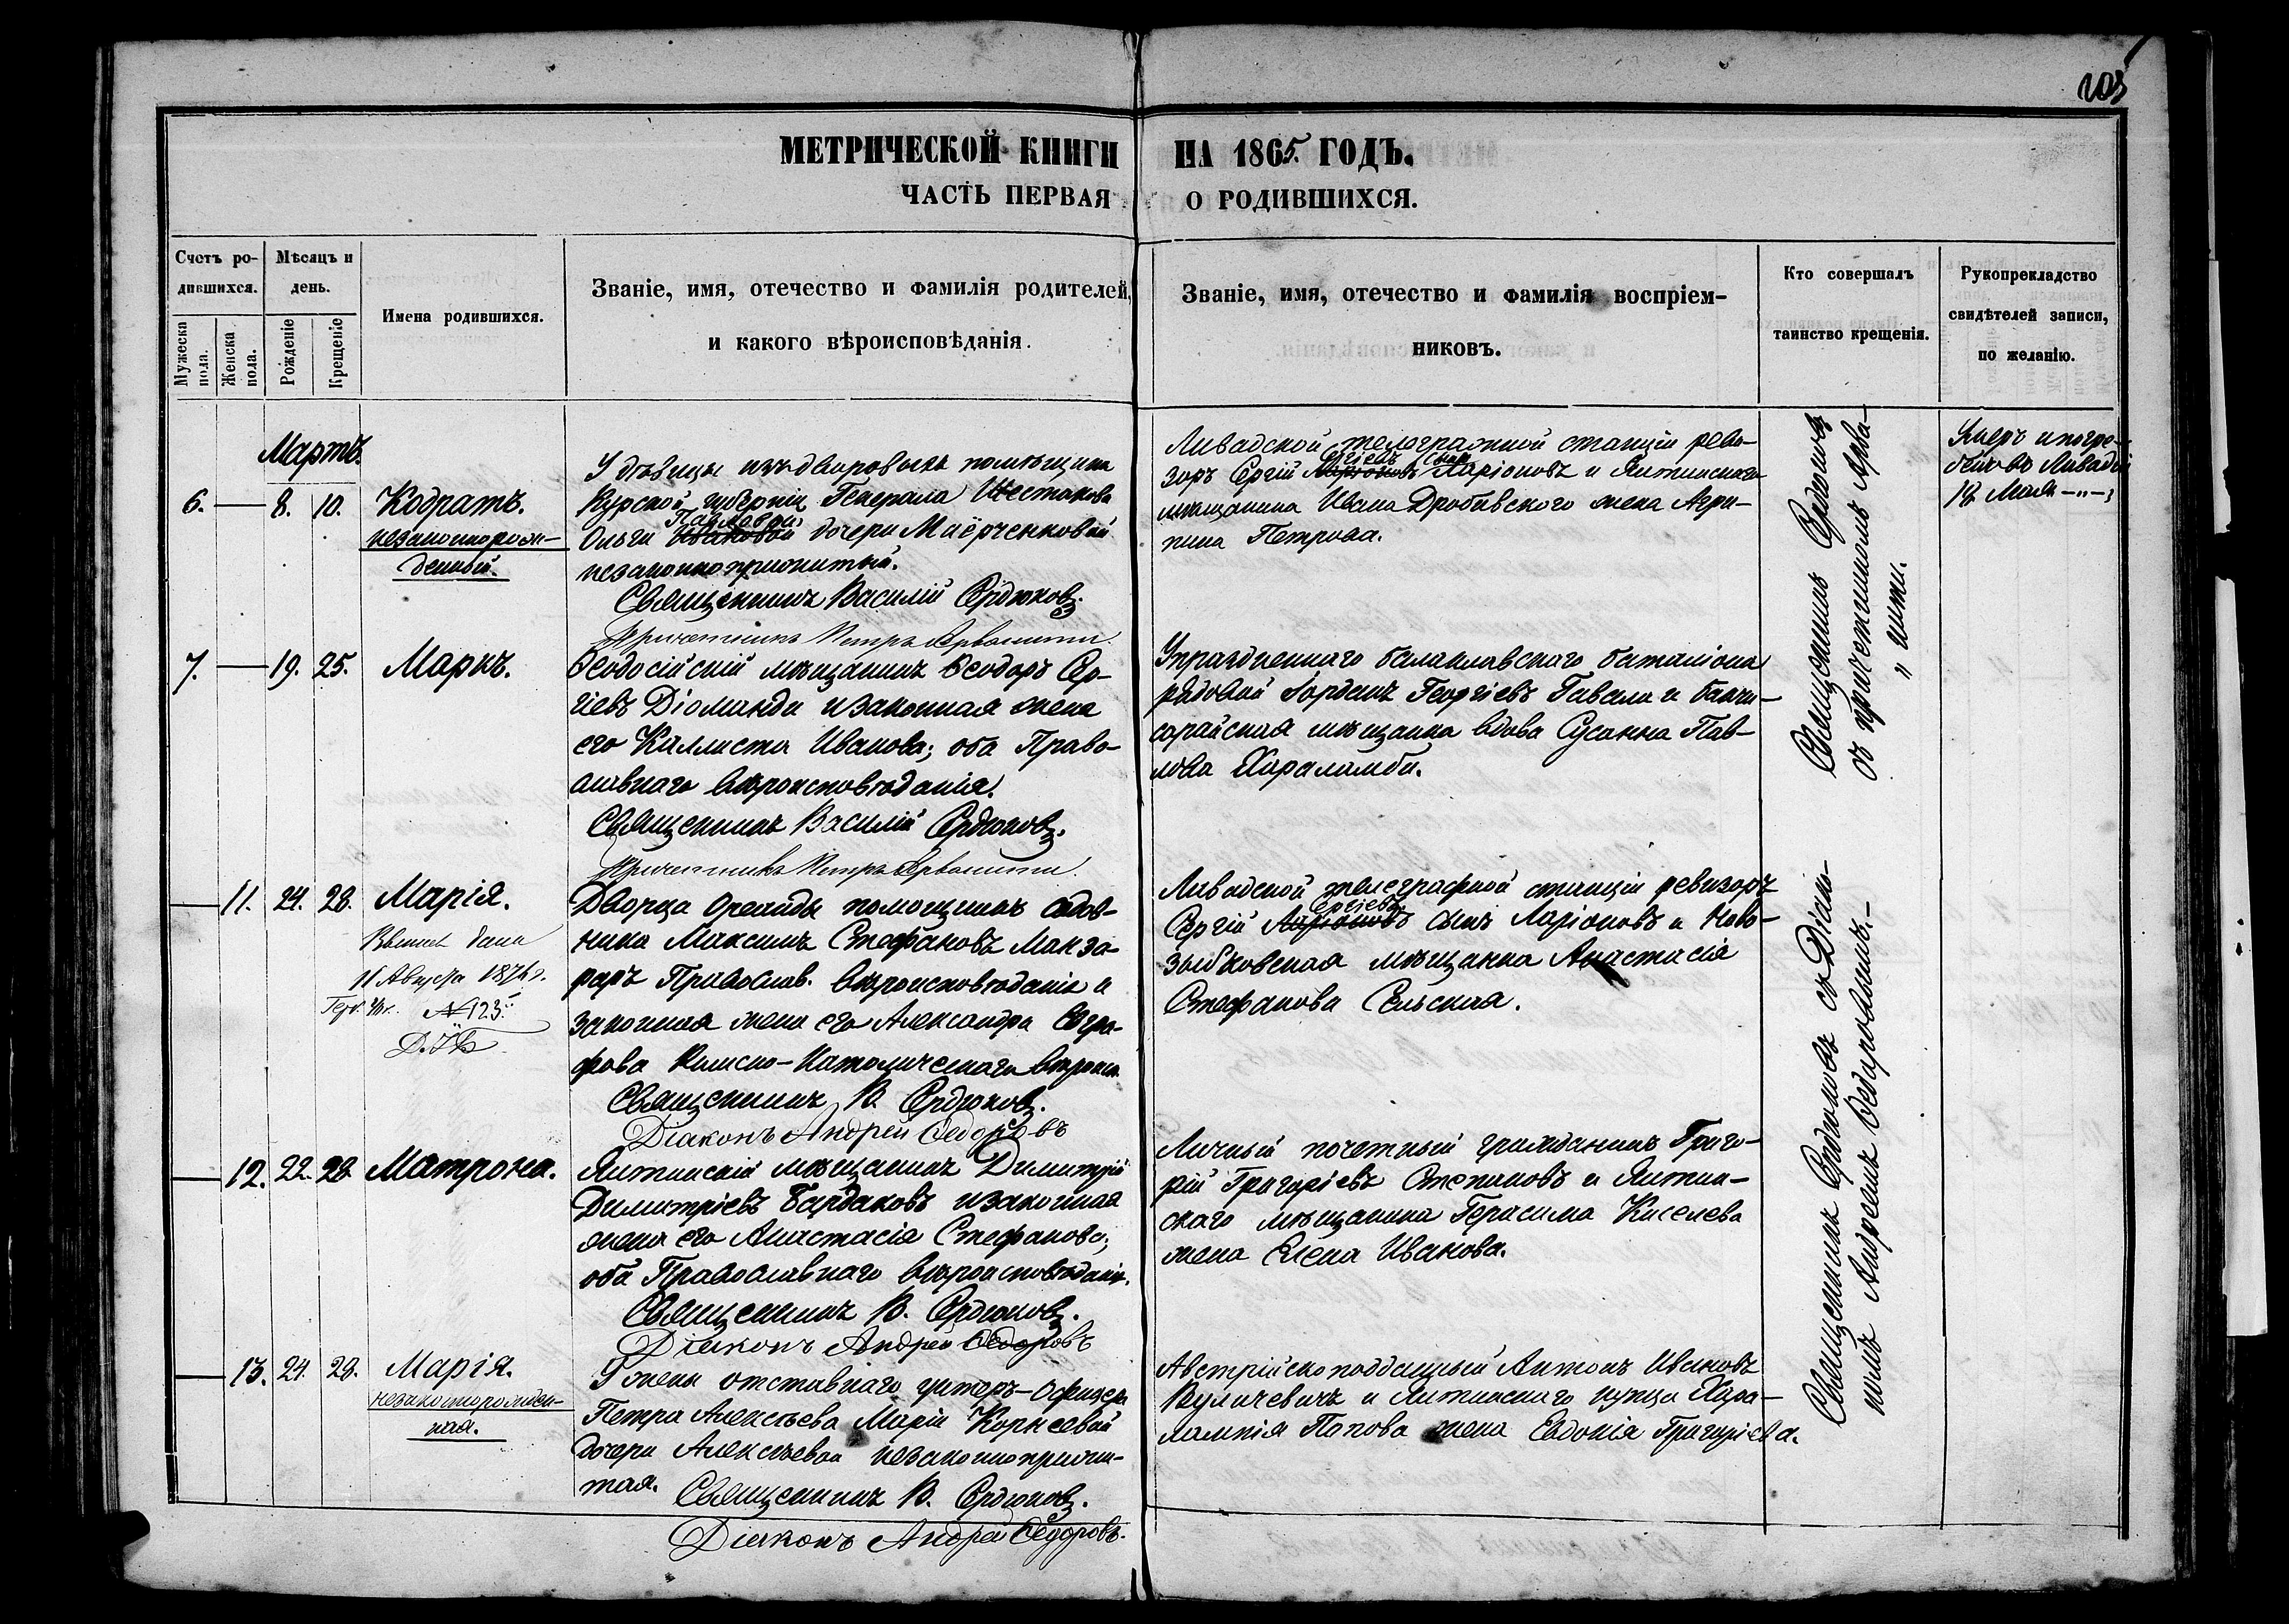 103
МЕТРИЧЕСКОЙ КНИГИ НА 1865. ГОДЪ.
ЧАСТЬ ПЕРВАЯ О РОДИВШИХСЯ.
Счетъ ро-
дившихся.
Мужеска
пола.
Женска
пола.
Мѣсяцъ и
день.
Рожденіе
Крещеніе
Имена родившихся.
Званіе, имя, отечество и фамилія родителей,
и какого вѣроисповѣданія.
Званіе, имя, отечество и фамилія воспріем-
никовъ.
Кто совершалъ
таинство крещенія.
Рукоприкладство
свидѣтелей записи,
по желанію.
Мартъ.
6. 8. 10.
Кодратъ.
незаконнорож-
денный.
У дѣвицы изъ дворовыхъ помѣщика
Курской губерніи Генерала Шестакова
Павловой
Ольги Ивановой дочери Маiёрченковой
незаконноприжитый.
Священникъ Василій Сердюковъ.
Причетникъ Петръ Арванити.
Ливадской телеграфной станціи реви-
Сергіевъ сынъ
зоръ Сергій Ларіоновъ Ларіоновъ и Ялтинскаго
мѣщанина Ивана Дробивского жена Агри-
пина Петрова.
Священникъ Сердюковъ
съ причетникомъ Арва-
„ нити.
Умеръ и погре-
бенъ въ Ливадіи
18 Мая -„-
7. 19. 25.
Маркъ.
Ѳеодосійскій мѣщанинъ Ѳеодоръ Сер-
гіевъ Діоманди и законная жена
его Каллиста Иванова; оба Право-
славнаго вѣроисповѣданія.
Священникъ Василій Сердюковъ.
Причетникъ Петръ Арванити.
Упраздненнаго балаклавскаго баталіона
рядовой Іорданъ Георгіевъ Гавала и бахчи-
сарайская мѣщанка вдова Сусанна Пав-
лова Хараламби.
11. 24. 28.
Марія.
дана
11 Августа 1874 г.
№ 123.
Дворца Ореанды помощникъ садов-
ника Максимъ Стефановъ Манза-
раръ Православ. вѣроисповѣданія и
законная жена его Александра Евгра-
фова Римско-Католическаго вѣроисп.
Священникъ В. Сердюковъ.
Діаконъ Андрей Ѳедоровъ
Ливадской телеграфной станціи ревизоръ
Сергіевъ
Сергій Ларіоновъ сынъ Ларіоновъ и Ново-
зыбковская мѣщанка Анастасія
Стефанова Сельская.
Священникъ Сердюковъ съ Діако-
номъ Андреемъ Ѳедоровымъ.-
12. 22. 28.
Матрона.
Ялтинскій мѣщанинъ Димитрій
Димитріевъ Бардаковъ и законная
жена его Анастасія Стефанова;
оба Православнаго вѣроисповѣданія.
Священникъ В. Сердюковъ.
Діаконъ Андрей Ѳедоровъ
Личный почетный гражданинъ Григо-
рій Григоріевъ Степановъ и Ялтин-
скаго мѣщанина Герасима Киселева
жена Елена Иванова.
13. 24. 28.
Марія.
незаконнорожден-
ная.
У жены отставнаго унтеръ-Офицера
Петра Алексѣева Маріи Корнеевой
дочери Алексѣевой незаконноприжи-
тая. Священникъ В. Сердюковъ.
Діаконъ Андрей Ѳедоровъ.
Австрійскоподданный Антонъ Ивановъ
Вуличевичъ и Ялтинскаго купца Хара-
лампія Попова жена Евдокія Григоріева.